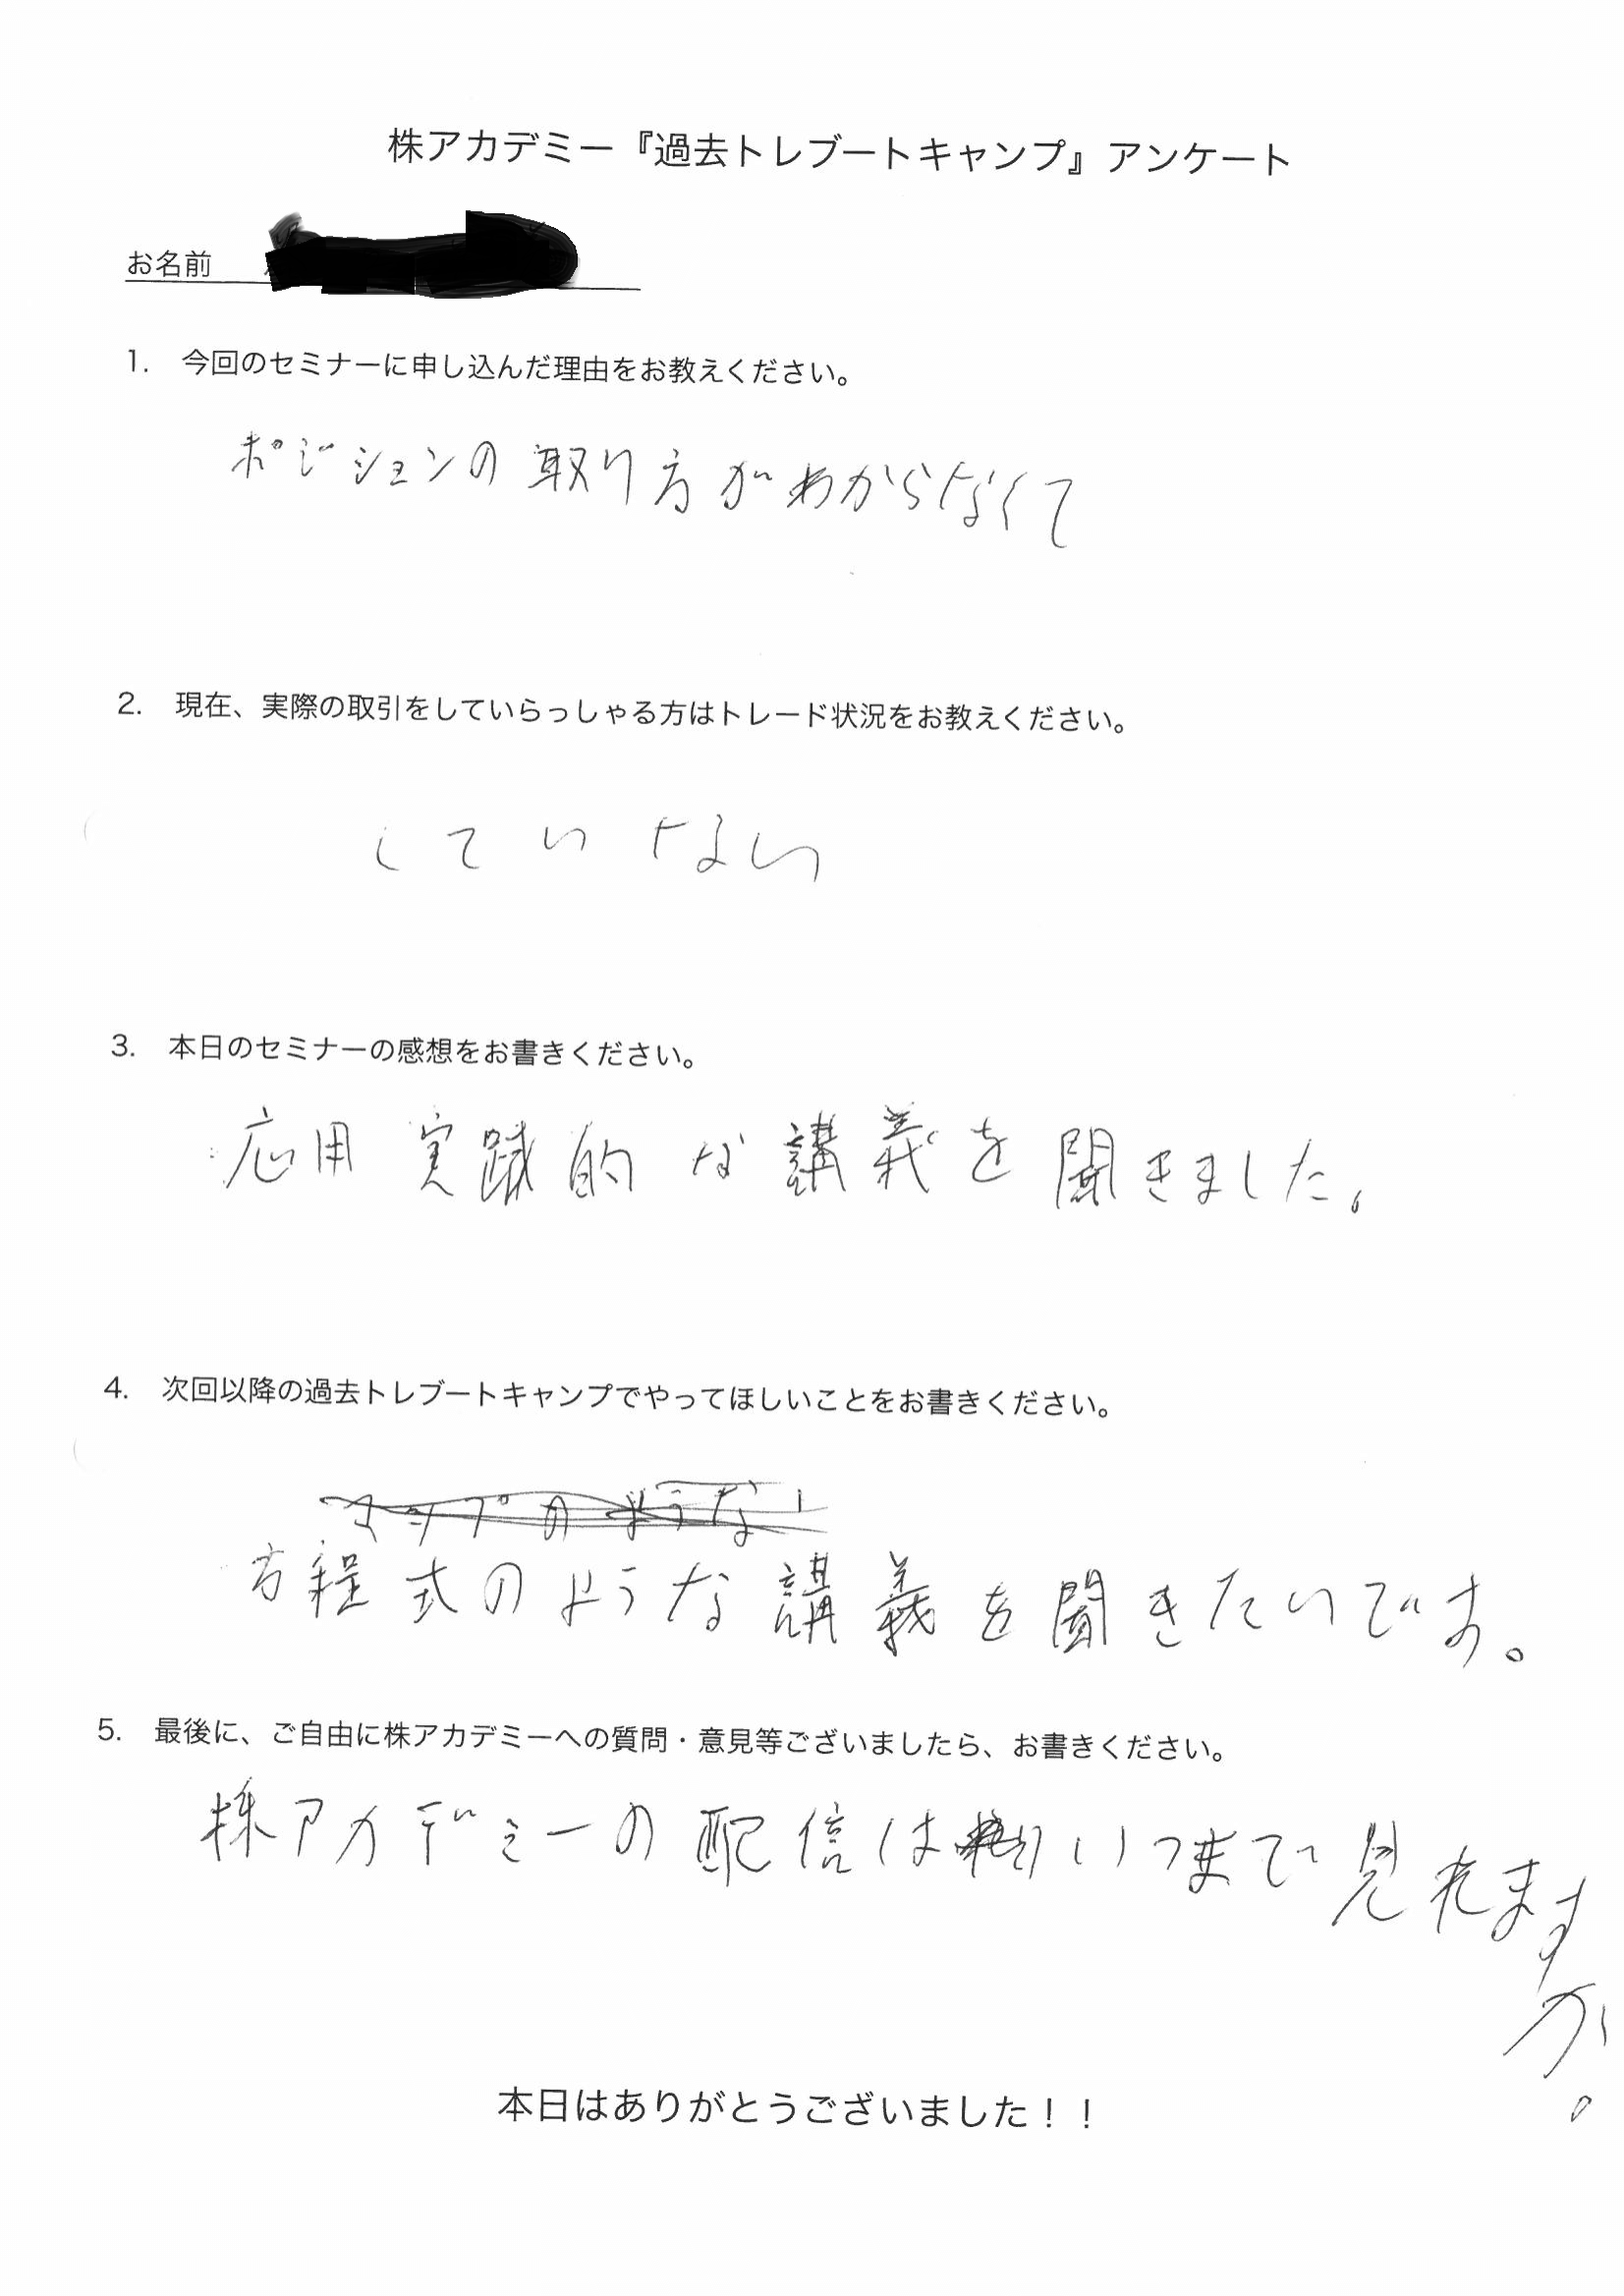 株アカデミー『過去トレブートキャンプ』アンケート
お名前
1. 今回のセミナーに申し込んだ理由をお教えください。
ポジションの取り方がわからなくて
2. 現在、実際の取引をしていらっしゃる方はトレード状況をお教えください。
していない
3. 本日のセミナーの感想をお書きください。
応用実践的な講義を聞きました。
4. 次回以降の過去トレブートキャンプでやってほしいことをお書きください。
マップのような
方程式のような講義を聞きたいです。
5. 最後に、ご自由に株アカデミーへの質問・意見等ございましたら、お書きください。
株アカデミーの配信はいつまで見れます
か。
本日はありがとうございました！！